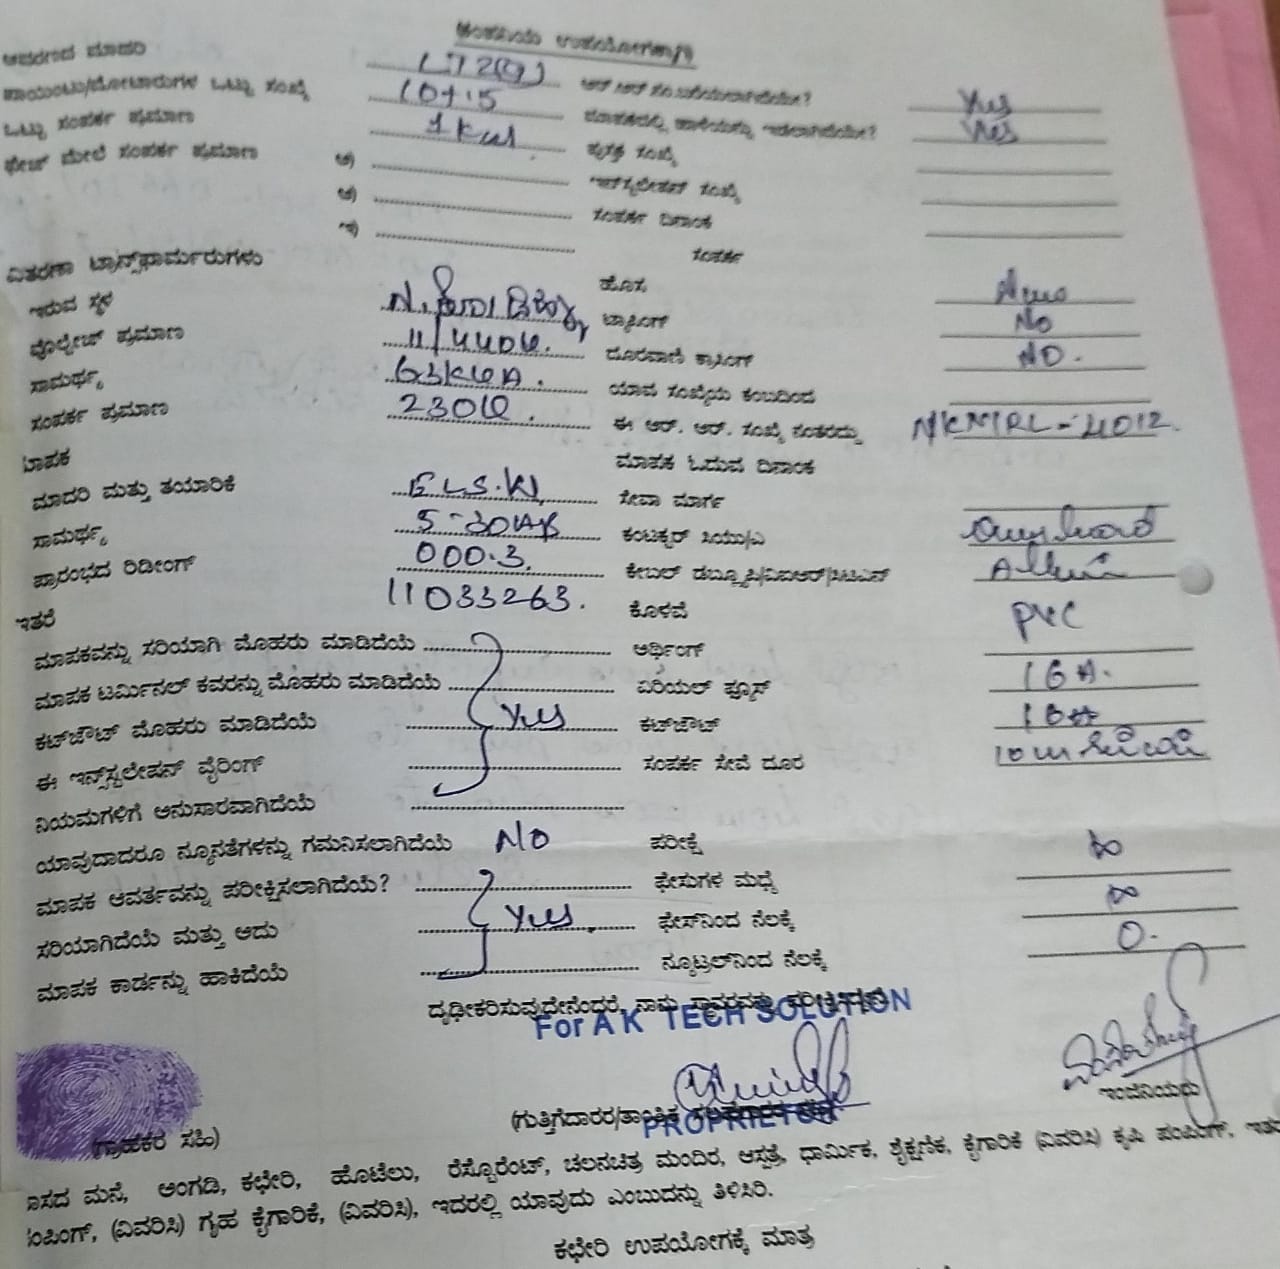 ಕಂಪೆನಿಯ ಉಪಯೋಗಕ್ಕಾಗಿ
ಆವರಣದ ಮಾದರಿ LT2(a) ಆರ್ ಆರ್ ನಂ. ಬರೆಯಲಾಗಿದೆಯೇ? Yes
ಪಾಯಿಂಟು/ಮೋಟಾರುಗಳ ಒಟ್ಟು ಸಂಖ್ಯೆ 10+5 ಮಾಪಕದಲ್ಲಿ ಹಾಳೆಯನ್ನು ಇಡಲಾಗಿದೆಯೇ? Yes
ಒಟ್ಟು ಸಂಪರ್ಕ ಪ್ರಮಾಣ 1 Kw ಪುಸ್ತಕ ಸಂಖ್ಯೆ
ಫೇಜ್ ಮೇಲೆ ಸಂಪರ್ಕ ಪ್ರಮಾಣ ಅ) ಇನ್‌ಸ್ಟಲೇಶನ್ ಸಂಖ್ಯೆ
ಆ) ಸಂಪರ್ಕ ದಿನಾಂಕ
ಇ) ಸಂಪರ್ಕ
ವಿತರಣಾ ಟ್ರಾನ್ಸ್‌ಫಾರ್ಮರುಗಳು
ಇರುವ ಸ್ಥಳ ಹೊಸ
ವೊಲ್ಟೇಜ್ ಪ್ರಮಾಣ 11/440V. ಟ್ಯಾಪಿಂಗ್ No
ಸಾಮರ್ಥ್ಯ 63KVA. ದೂರವಾಣಿ ಕ್ರಾಸಿಂಗ್ NO.
ಸಂಪರ್ಕ ಪ್ರಮಾಣ 230V. ಯಾವ ಸಂಖ್ಯೆಯ ಕಂಬದಿಂದ
ಈ ಆರ್. ಆರ್. ಸಂಖ್ಯೆ ನಂತರದ್ದು NKMRL-4012.
ಮಾಪಕ ಮಾಪಕ ಓದುವ ದಿನಾಂಕ
ಮಾದರಿ ಮತ್ತು ತಯಾರಿಕೆ ಸೇವಾ ಮಾರ್ಗ
ಸಾಮರ್ಥ್ಯ 5-30A ಕಂಡಕ್ಟರ್ ಸಿಯು/ಎ
ಪ್ರಾರಂಭದ ರಿಡೀಂಗ್ 000.3. ಕೇಬಲ್ ಡಬ್ಲ್ಯೂಪಿ/ವಿಐಆರ್/ಸಿಟಿಎಸ್
ಇತರೆ 11033263. ಕೊಳವೆ PVC
ಮಾಪಕವನ್ನು ಸರಿಯಾಗಿ ಮೊಹರು ಮಾಡಿದೆಯೆ ಅರ್ಥಿಂಗ್
ಮಾಪಕ ಟರ್ಮಿನಲ್ ಕವರನ್ನು ಮೊಹರು ಮಾಡಿದೆಯೆ ಏರಿಯಲ್ ಫ್ಯೂಸ್ 16A.
ಕಟ್‌ಔಟ್ ಮೊಹರು ಮಾಡಿದೆಯೆ Yes ಕಟ್‌ಔಟ್ 16A
ಈ ಇನ್‌ಸ್ಟಲೇಷನ್ ವೈರಿಂಗ್ ಸಂಪರ್ಕ ಸೇವೆ ದೂರ
ನಿಯಮಗಳಿಗೆ ಅನುಸಾರವಾಗಿದೆಯೆ
ಯಾವುದಾದರೂ ನ್ಯೂನತೆಗಳನ್ನು ಗಮನಿಸಲಾಗಿದೆಯೆ No ಪರೀಕ್ಷೆ ∞
ಮಾಪಕ ಆವರ್ತವನ್ನು ಪರೀಕ್ಷಿಸಲಾಗಿದೆಯೆ? ಫೇಸುಗಳ ಮಧ್ಯೆ ∞
ಸರಿಯಾಗಿದೆಯೆ ಮತ್ತು ಆದು Yes. ಫೇಸ್‌ನಿಂದ ನೆಲಕ್ಕೆ 0.
ಮಾಪಕ ಕಾರ್ಡನ್ನು ಹಾಕಿದೆಯೆ ನ್ಯೂಟ್ರಲ್‌ನಿಂದ ನೆಲಕ್ಕೆ
ದೃಢೀಕರಿಸುವುದೇನೆಂದರೆ, ನಾವು
For A K TECH SOLUTION
ಇಂಜಿನಿಯರು
(ಗುತ್ತಿಗೆದಾರರ/ತಾಂತ್ರಿಕ
PROPRIETOR
(ಗ್ರಾಹಕರ ಸಹಿ)
ವಾಸದ ಮನೆ, ಅಂಗಡಿ, ಕಛೇರಿ, ಹೊಟೆಲು, ರೆಸ್ಟೊರೆಂಟ್, ಚಲನಚಿತ್ರ ಮಂದಿರ, ಆಸ್ಪತ್ರೆ, ಧಾರ್ಮಿಕ, ಶೈಕ್ಷಣಿಕ, ಕೈಗಾರಿಕೆ (ವಿವರಿಸಿ) ಕೃಷಿ ಪಂಪಿಂಗ್, ಇತರ
ಪಂಪಿಂಗ್, (ವಿವರಿಸಿ) ಗೃಹ ಕೈಗಾರಿಕೆ, (ವಿವರಿಸಿ), ಇದರಲ್ಲಿ ಯಾವುದು ಎಂಬುದನ್ನು ತಿಳಿಸಿರಿ.
ಕಛೇರಿ ಉಪಯೋಗಕ್ಕೆ ಮಾತ್ರ